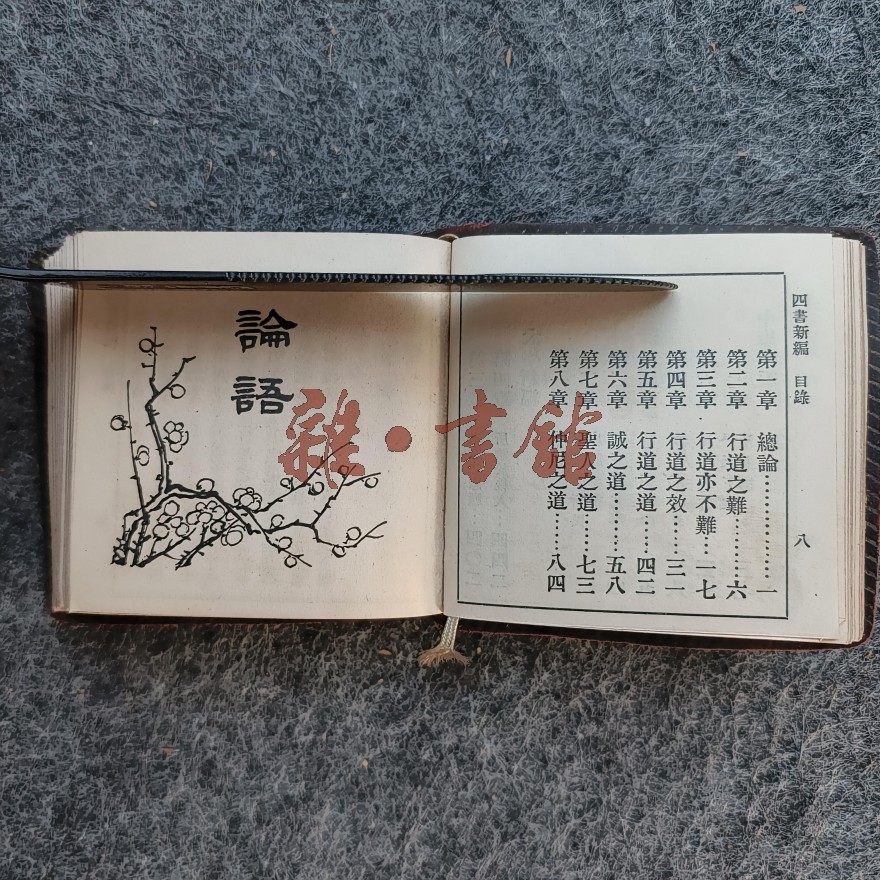 四書新編 目錄
八
第一章 總論……………一
第二章 行道之難………六
第三章 行道亦不難…一七
第四章 行道之效……三一
第五章 行道之道……四二
第六章 誠之道………五八
第七章 聖人之道……七三
第八章 仲尼之道……八四
論語
雜·書館